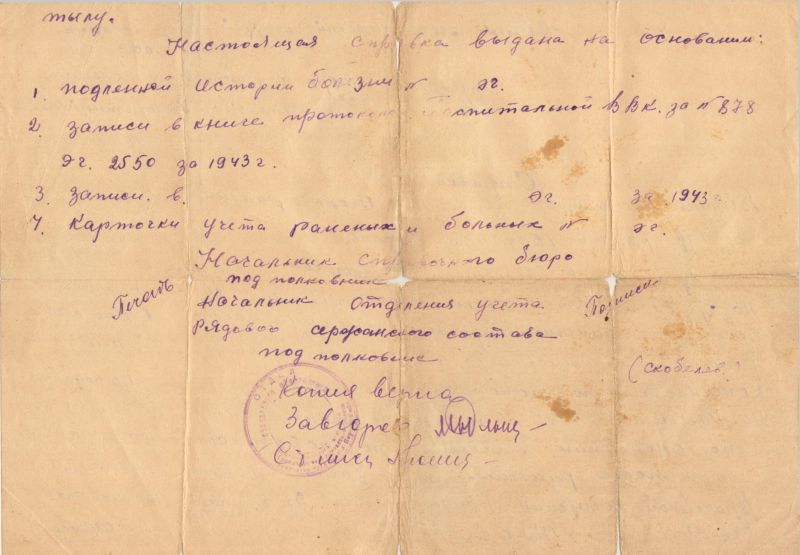 тылу.
Настоящая справка выдана на основании:
1. подленной истории болезни № эг.
2. записи в книге протоколов Госпитальной ВВК. за № 878
эг. 2550 за 1943 г.
3. записи. в. эг. за 1943 г.
4. Карточки учета раненых и больных № эг.
Начальник справочного бюро
под полковник
Печать Начальник отделения учета. Подписи
Рядового сержанского состава
под полковник (Скобелев.)
Копия верна